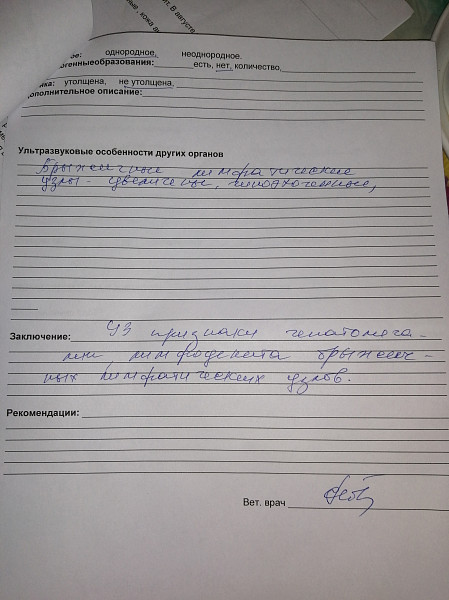 однородное, неоднородное.
генныеобразования: есть, нет, количество,
утолщена, не утолщена.
дополнительное описание:
Ультразвуковые особенности других органов
Брыжеечные лимфатические
узлы увеличены, гипоэхогенные,
Заключение: УЗ признаки гепатомега-
лии, лимфаденита брыжееч-
ных лимфатических узлов.
Рекомендации:
Вет. врач